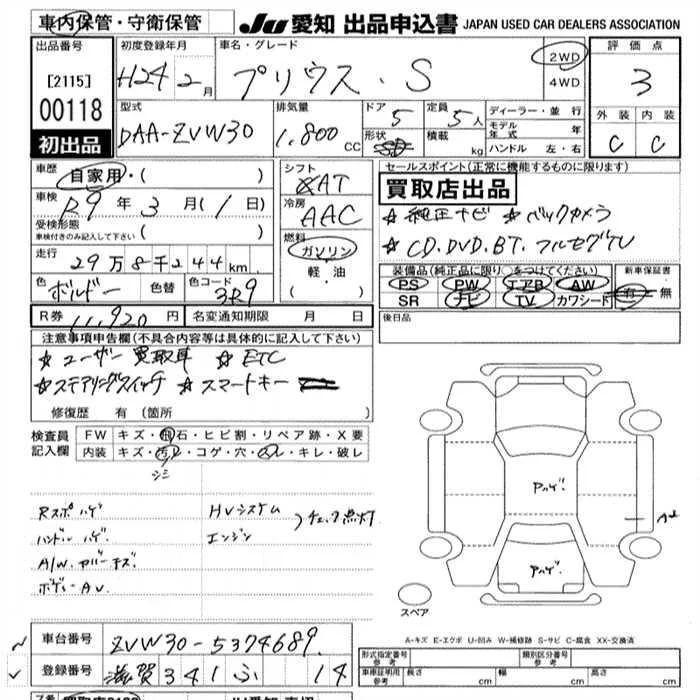 車内保管・守衛保管
JU 愛知 出品申込書 JAPAN USED CAR DEALERS ASSOCIATION
出品番号
[2115]
00118
初出品
初度登録年月
H24 2月
車名・グレード
プリウス・S
2WD
4WD
評価点
3
外装 内装
C C
型式
DAA-ZVW30
排気量
1,800 CC
ドア 5
形状
定員 5人
積載 kg
ディーラー・並行
モデル年式 年
ハンドル 左・右
車歴
自家用・( )
車検
R9年3月(1日)
受検形態
車検付きのみ記入して下さい( )
走行
29万8千244km
色 ボルドー 色替 色コード 3R9
シフト
AT
冷房
AAC
燃料
ガソリン
軽・油
・( )
セールスポイント(正常に機能するものに限ります)
買取店出品
☆純正ナビ ☆バックカメラ
☆CD.DVD.BT.フルセグTV
装備品(純正品に限り○をつけてください)
PS PW エアB AW
SR ナビ TV カワシート
新車保証書
有・無
R券 11,920円 名変通知期限 月 日
後日品
注意事項申告欄(不具合内容等は具体的に記入して下さい)
☆ユーザー買取車 ☆ETC
☆ステアリングスイッチ ☆スマートキー
修復歴 有(箇所 )
検査員記入欄
FW キズ・飛石・ヒビ割・リペア跡・X要
内装 キズ・汚れ・コゲ・穴・スレ・キレ・破レ
シミ
Rスポ ハゲ
ハンドル ハゲ
A/W.カバーキズ
ボディーAU
HVシステム
エンジン
チェック点灯
アハゲ
アハゲ
スペア
A-キズ E-エクボ U-凹み W-補修跡 S-サビ C-腐食 XX-交換済
車台番号 ZVW30-5374689
登録番号 滋賀341ふ 14
形式指定番号 参考
類別区分番号 参考
車庫証明用参考 長さ cm 幅 cm 高さ cm